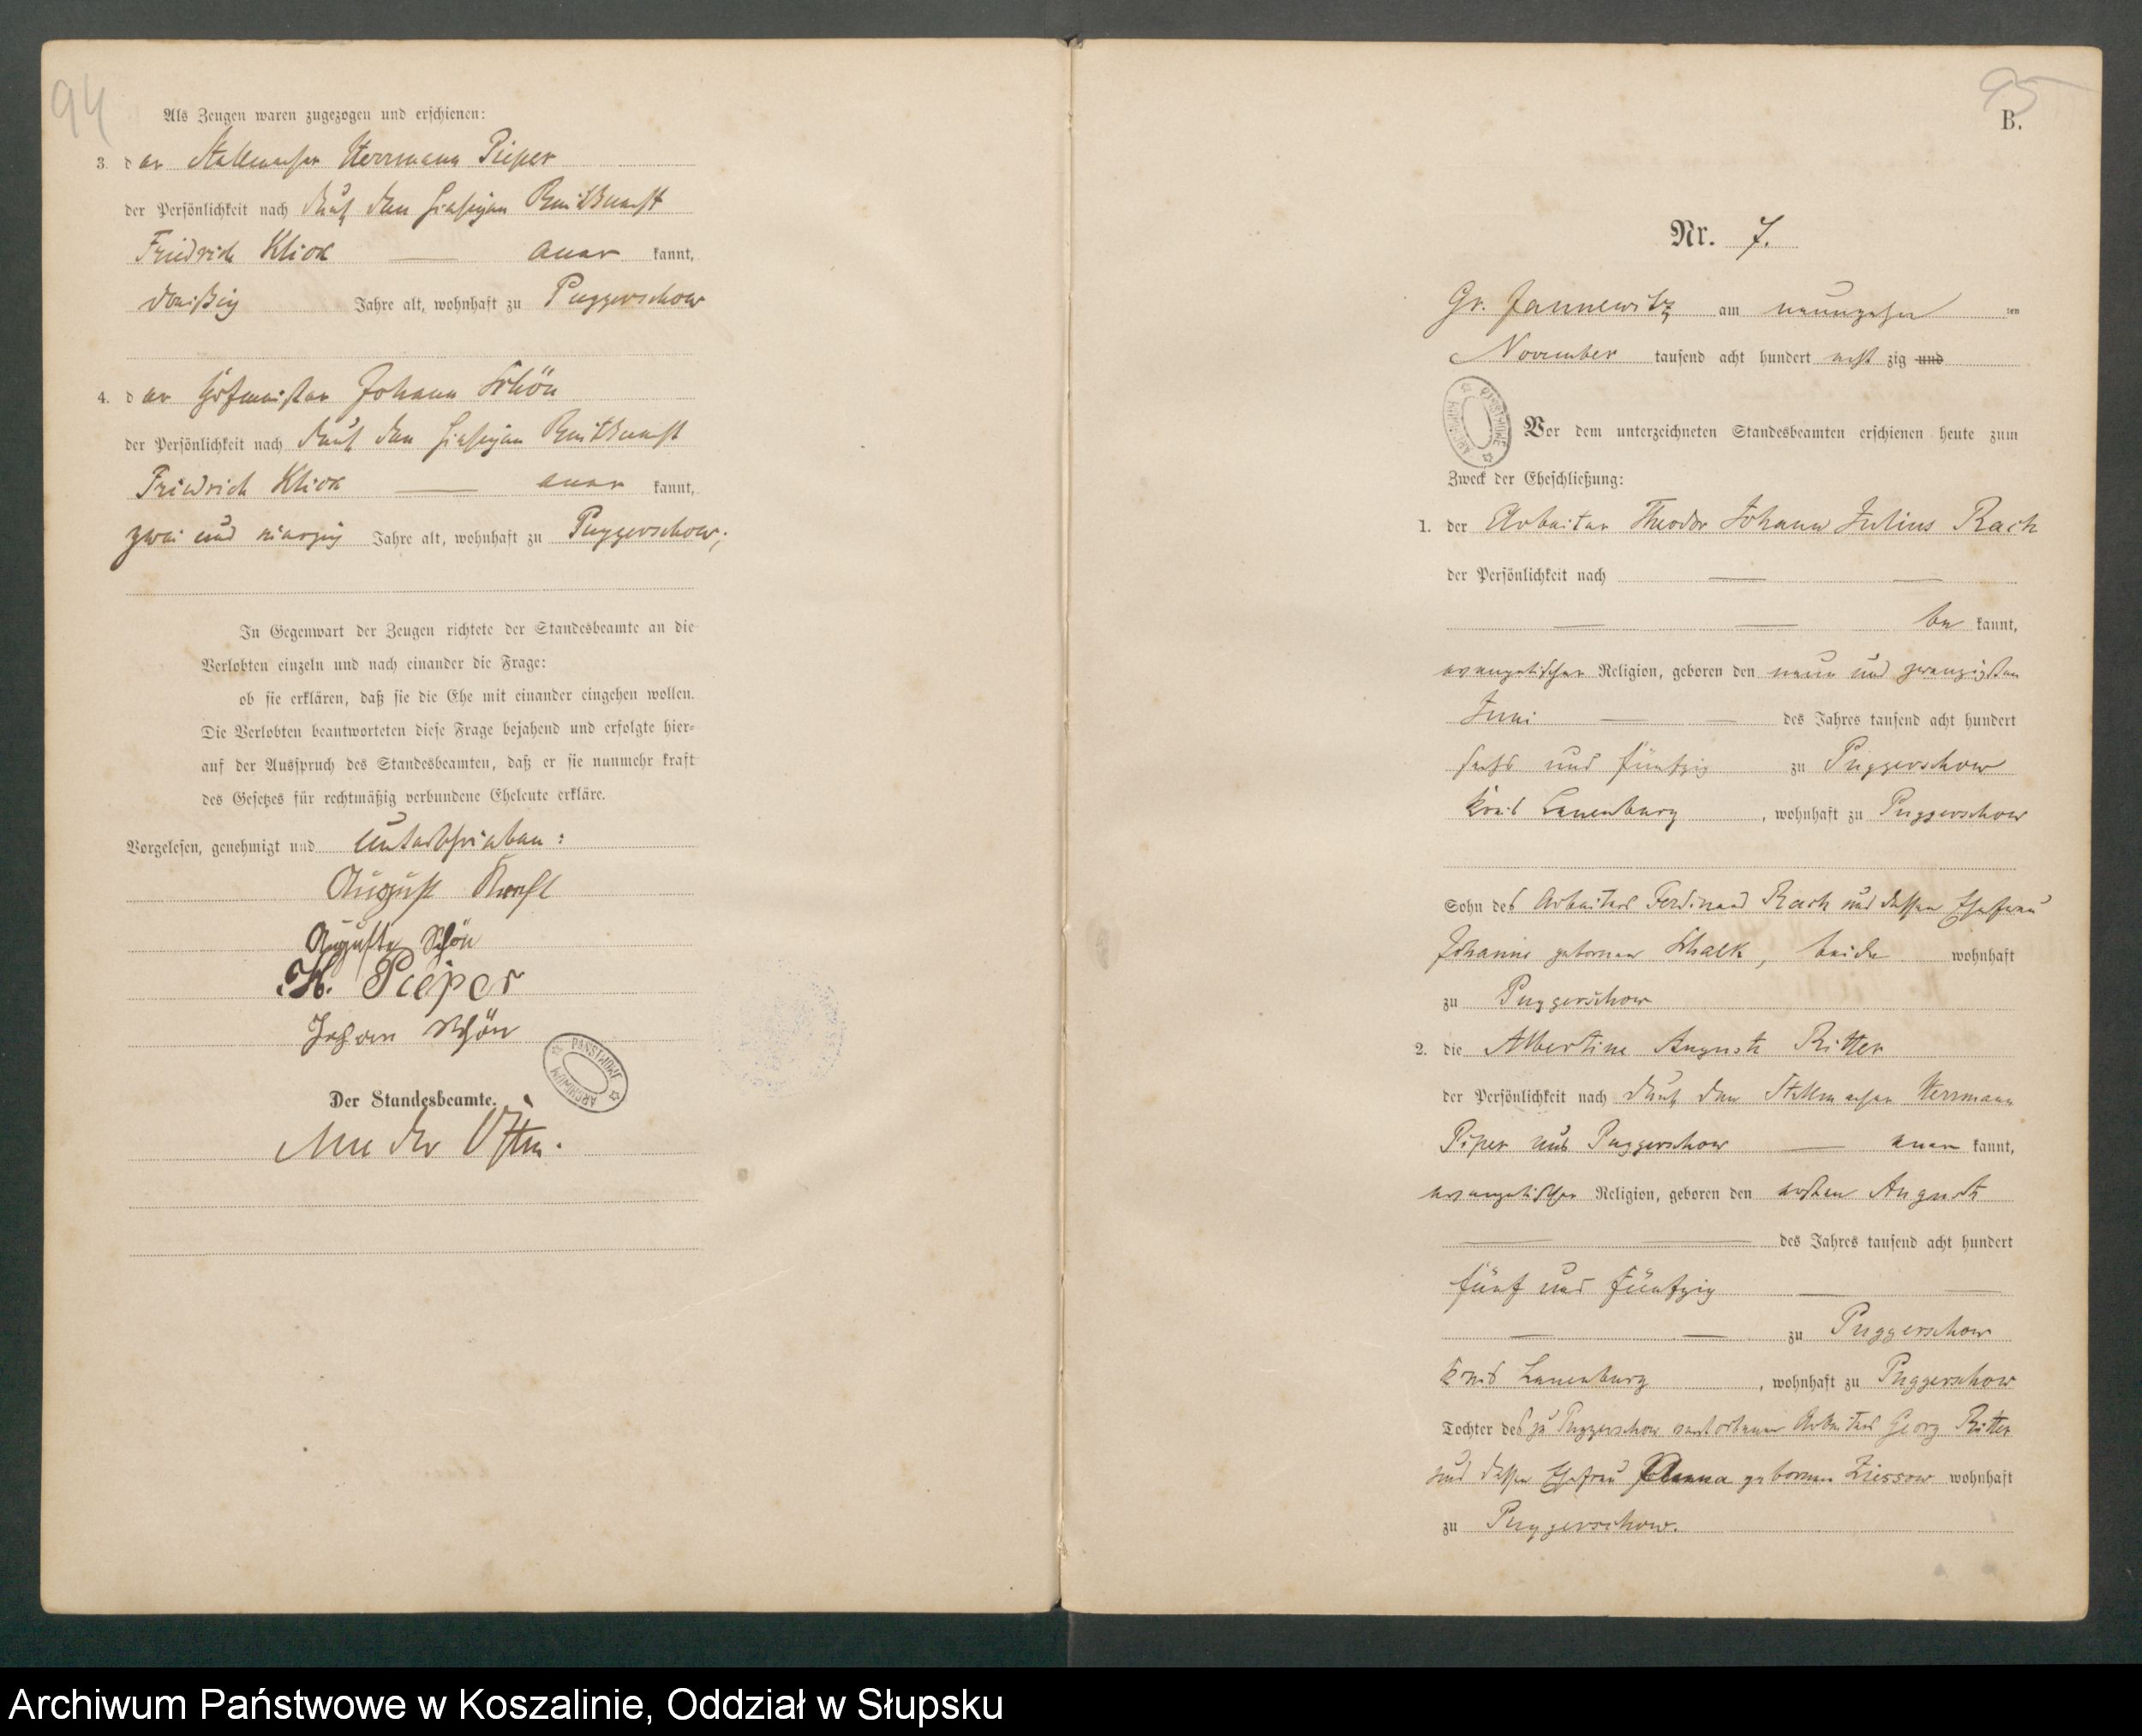 94
Als Zeugen waren zugezogen und erschienen:
3. der Stellmacher Herrmann Pieper
der Persönlichkeit nach durch den hiesigen
Friedrich Klick — aner kannt,
dreißig Jahre alt, wohnhaft zu Puggerschow
4. der Hofmeister Johann Schön
der Persönlichkeit nach durch den hiesigen
Friedrich Klick — aner kannt,
zwei und vierzig Jahre alt, wohnhaft zu Puggerschow;
In Gegenwart der Zeugen richtete der Standesbeamte an die
Verlobten einzeln und nach einander die Frage:
ob sie erklären, daß sie die Ehe mit einander eingehen wollen.
Die Verlobten beantworteten diese Frage bejahend und erfolgte hier-
auf der Ausspruch des Standesbeamten, daß er sie nunmehr kraft
des Gesetzes für rechtmäßig verbundene Eheleute erkläre.
Vorgelesen, genehmigt und unterschrieben:
August
Auguste Schön
H. Pieper
Johann Schön
PAŃSTWOWE ARCHIWUM
Der Standesbeamte.
von der Osten.
95
B.
Nr. 7.
Gr. Jannewitz am neunzehn ten
November tausend acht hundert acht zig und
PAŃSTWOWE ARCHIWUM
Vor dem unterzeichneten Standesbeamten erschienen heute zum
Zweck der Eheschließung:
1. der Arbeiter Theodor Johann Julius Rach
der Persönlichkeit nach — —
— — be kannt,
evangelischer Religion, geboren den neun und zwanzigsten
Juni — — des Jahres tausend acht hundert
sechs und fünfzig zu Puggerschow
Kreis Lauenburg, wohnhaft zu Puggerschow
Sohn des Arbeiters Ferdinand Rach und dessen Ehefrau
Johanne geborenen Schalk, beide wohnhaft
zu Puggerschow
2. die Albertine Auguste Ritter
der Persönlichkeit nach durch den Stellmacher Herrmann
Piper aus Puggerschow — aner kannt,
evangelischer Religion, geboren den ersten August
— — des Jahres tausend acht hundert
fünf und fünfzig — —
— — zu Puggerschow
Kreis Lauenburg, wohnhaft zu Puggerschow
Tochter des zu Puggerschow verstorbenen Arbeiters Georg Ritter
und dessen Ehefrau Hanna geborenen Ziessow wohnhaft
zu Puggerschow.
Archiwum Państwowe w Koszalinie, Oddział w Słupsku